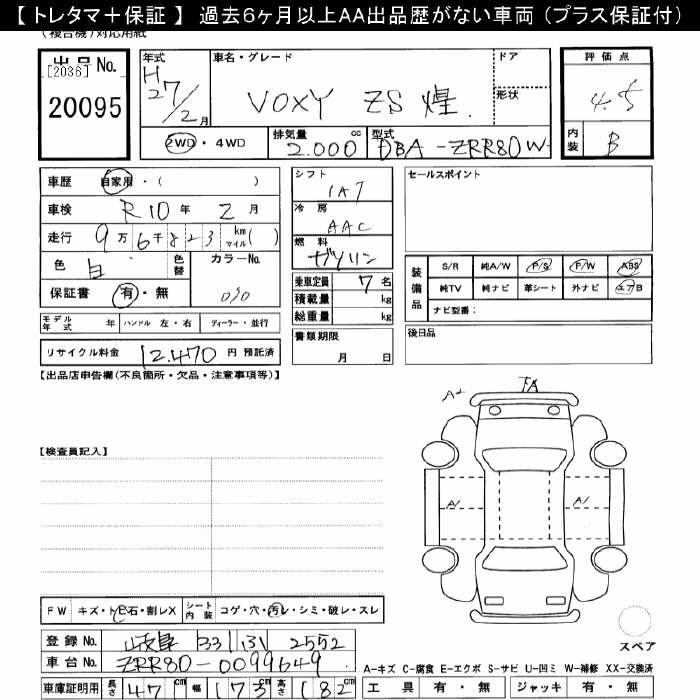 【 トレタマ＋保証 】 過去6ヶ月以上AA出品歴がない車両（プラス保証付）
（複合機）対応用紙
出品 No.
[2036]
20095
年式
H27/2月
車名・グレード
VOXY ZS 煌
ドア
形状
評価点
4.5
内装 B
2WD・4WD
排気量 2.000 cc
型式 DBA-ZRR80W
車歴 自家用・( )
車検 R10年 2月
走行 9万6千823 km マイル( )
色 白 色替 カラーNo.
070
保証書 有・無
シフト
IAT
冷房
AAC
燃料
ガソリン
乗車定員 7名
積載量 kg
総重量 kg
書類期限
月 日
セールスポイント
装備品
S/R 純A/W P/S P/W ABS
純TV 純ナビ 革シート 外ナビ エアB
ナビ型番：
後日品
モデル年式 年 ハンドル 左・右 ディーラー・並行
リサイクル料金 12.470 円 預託済
【出品店申告欄(不良箇所・欠品・注意事項等)】
A2
A1
A1
【検査員記入】
FW キズ・トビ石・割レX シート内装 コゲ・穴・汚レ・シミ・破レ・スレ
登録 No. 岐阜 331 2552
車台 No. ZRR80-0099649
車庫証明用 長さ 47 cm 幅 173 cm 高さ 182 cm
スペア
A-キズ C-腐食 E-エクボ S-サビ U-凹ミ W-補修 XX-交換済
工具 有・無 ジャッキ 有・無